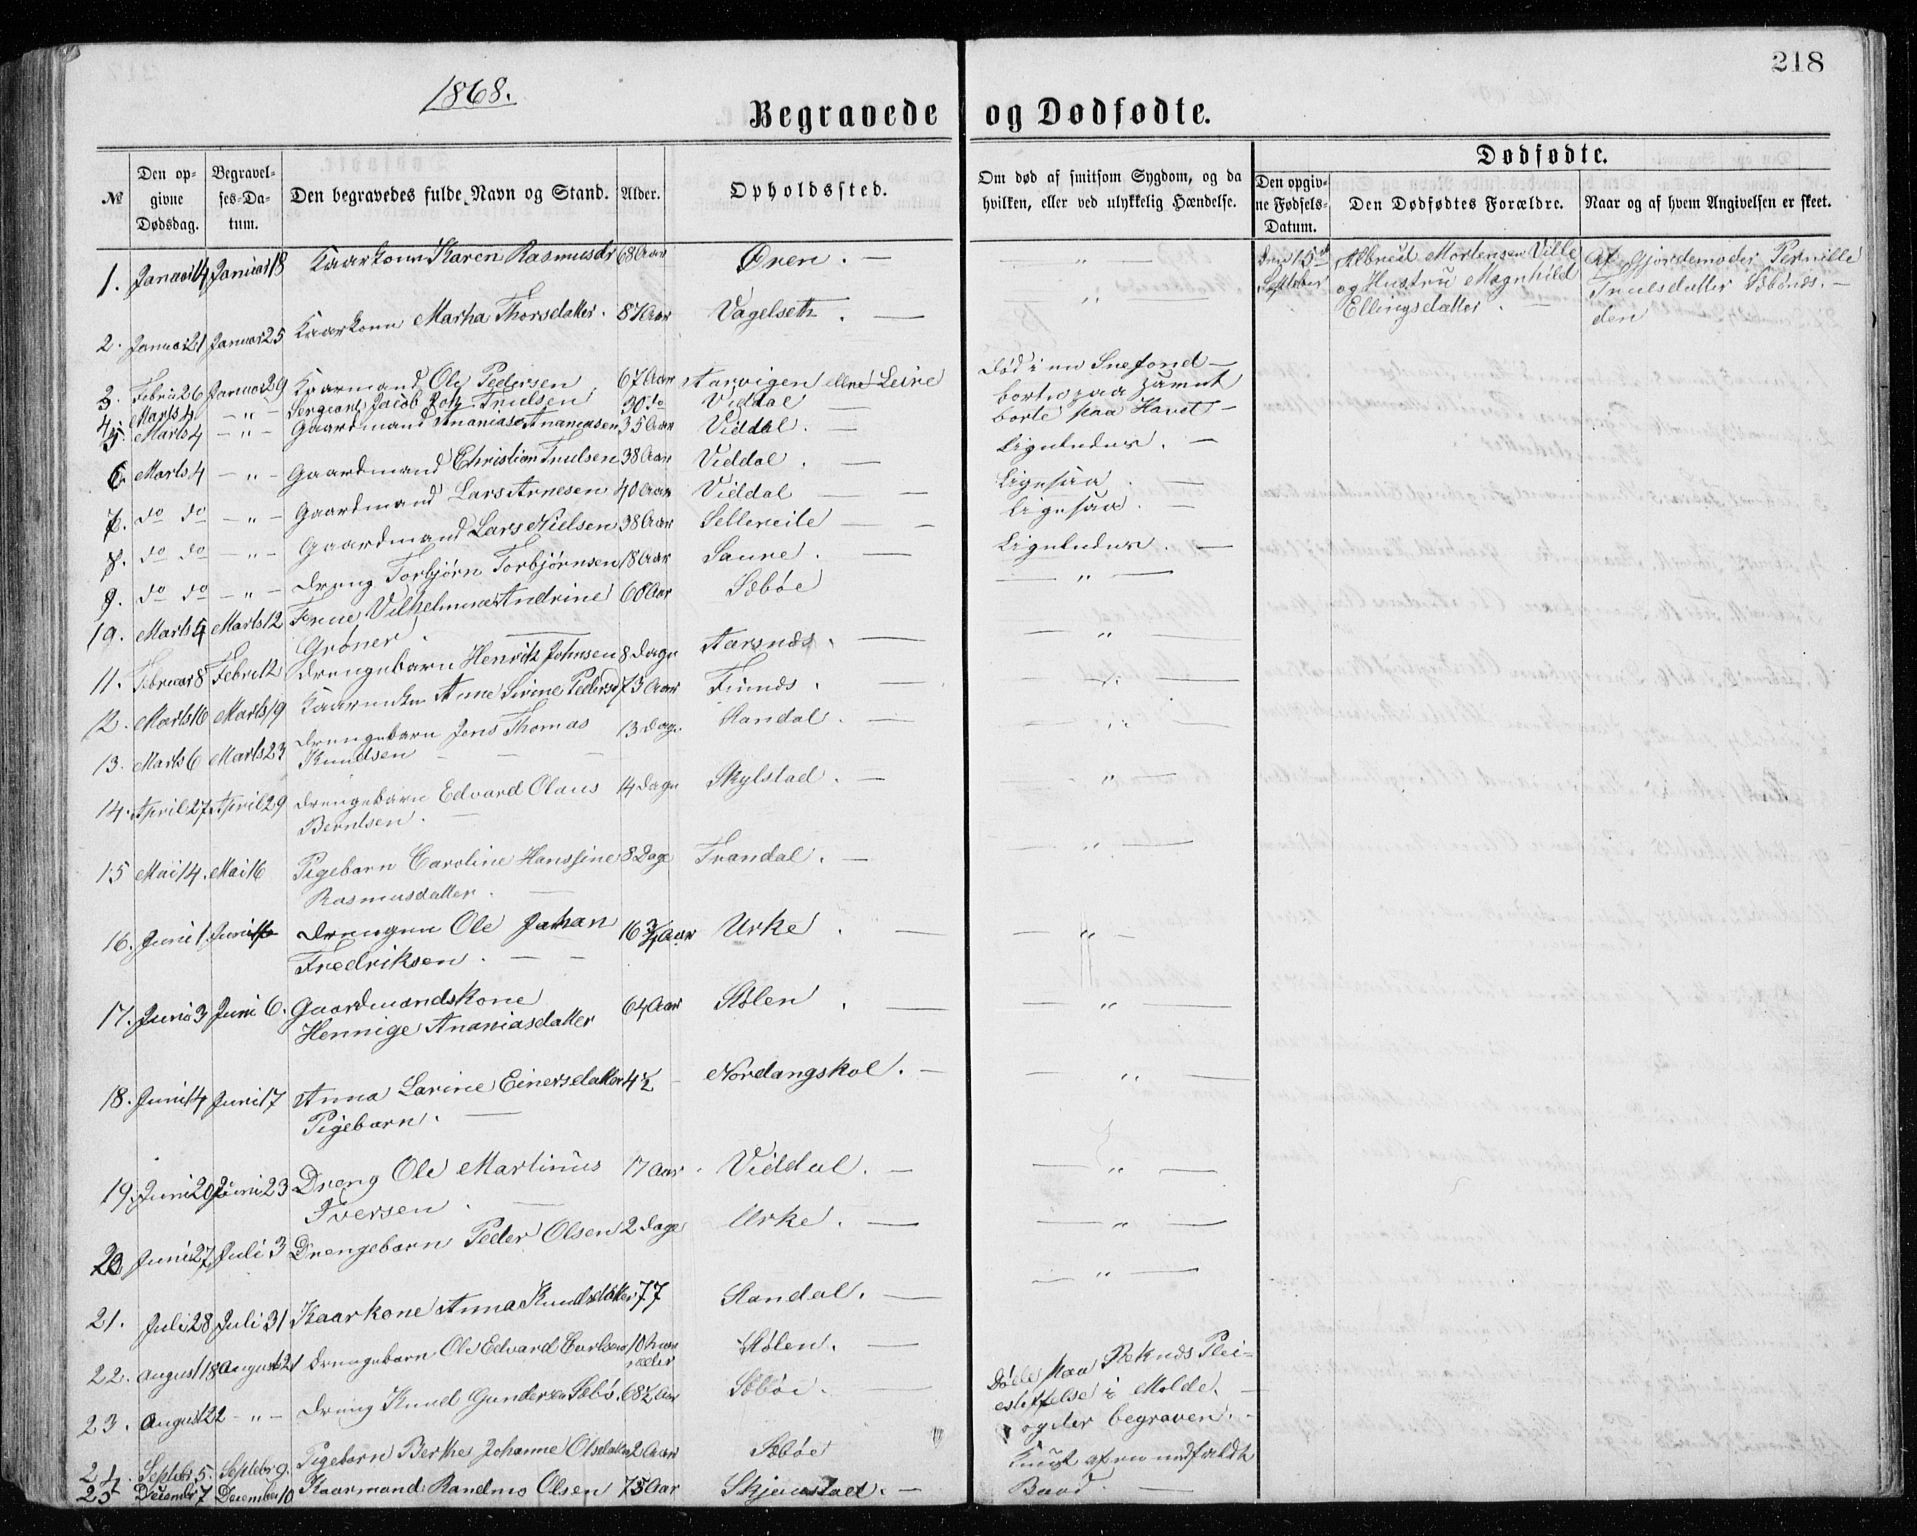 218
1868.
Begravede og Dødfødte.
№
Den opgivne Dødsdag.
Begravelses-Datum.
Den begravedes fulde Navn og Stand.
Alder.
Opholdssted.
Om død af smitsom Sygdom, og da hvilken, eller ved ulykkelig Hændelse.
Dødfødte.
Den opgivne Fødsels-Datum.
Den Dødfødtes Forældre.
Naar og af hvem Angivelsen er skeet.
1. Januar 14 Januar 18 Kaarkone Karen Rasmusdr 68 Aar Øren. — „ —
Den 15de September
Mortensen Ville og Hustru Magnhild Ellingsdatter
Af Gjordemoder Pernille Truelsdatter
2. Januar 21 Januar 25 Kaarkone Martha Thorsdatter. 87 Aar Vagelseth. — „ —
3. Febru 26 Januar 29 Kaarmand Ole Pedersen 67 Aar Aarvigen Leire
Død i en Snefond
4. Marts 4 — „ — Sergeant Jacob Truelsen 30 do Viddal
5. Marts 4 — „ — Gaardmand Ananias Ananiasen 35 Aar Viddal.
borte paa Havet —
6. Marts 4 — „ — Gaardmand Christian Truelsen 38 Aar Viddal. Ligeledes. —
7. do do — „ — Gaardmand Lars Arnesen 40 Aar Viddal Ligesaa. —
8. do do — „ — Gaardmand Lars Nielsen 38 Aar Ligesaa. —
9. do do — „ — Dreng Torbjørn Torbjørnsen 18 Aar Saure. Ligeledes. —
10. Marts 4 Marts 12 Frue Vilhelmine Andrine Grøner. 60 Aar Sæbøe — „ —
11. Februar 8 Febru 12 Drengebarn Henrik Johnsen 8 Dage Aarsnæs. — „ —
12. Marts 16 Marts 19 Anne Sirine Pedersd 73 Aar Finnes. — „ —
13. Marts 6 Marts 23 Drengebarn Jens Thomas Knudsen 13 Dage Standal. — „ —
14. April 27. April 29 Drengebarn Edvard Olaus Berntsen. 14 Dage Skylstad. — „ —
15 Mai 14. Mai 16 Pigebarn Caroline Hanssine Rasmusdatter. 8 Dage Trandal. — „ —
16. Juni 1. Juni Drengen Ole Johan Fredriksen. 16 3/4 Aar Urke. — „ —
17. Juni 3 Juni 6. Gaardmandskone Hennige Ananiasdatter 64 Aar Stølen. — „ —
18. Juni 14 Juni 17 Anna Larine Einersdatter Pigebarn. 4½ Nordangskol. — „ —
19. Juni 20 Juni 23 Dreng Ole Martinus Iversen. 17 Aar. Viddal. — „ —
20 Juni 27 Juli 3 Drengebarn Peder Olsen 2 Dage Urke. — „ —
21. Juli 28 Juli 31 Kaarkone Anna Knudsdatter 77 Standal. — „ —
22. August 18 August 21 Drengebarn Ole Edvard Carlsen Stølen. —
23. August 22 — „ — Dreng Knud Gundersen Sæbø. 68½ Aar Sæbøe.
Døde paa Reknes Pleiestiftelse i Molde. og der begraven.
24. Septebr 5. Septebr 9. Pigebarn Berthe Johanne Olsdatter 2 Aar Sæbøe
25 December 7 December 10 Kaarmand Olsen 75 Aar Skjaastad. —
Knust af en nedfaldt Baad. —